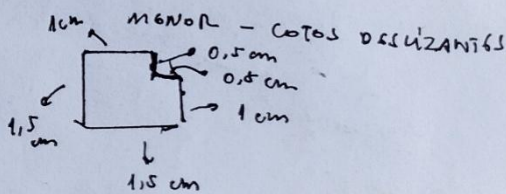 MENOR - COTOS DESLIZANTES
1cm
0,5 cm
0,5 cm
1 cm
1,5 cm
1,5 cm